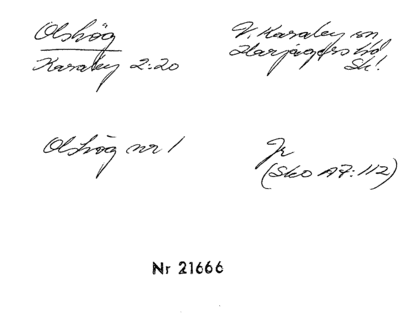 Olshög
Karaby 2:20
V. Karaby sn
Harjagers hd
Sk!
Olshög nr 1
Jr
(Sko A7:112)
Nr 21666